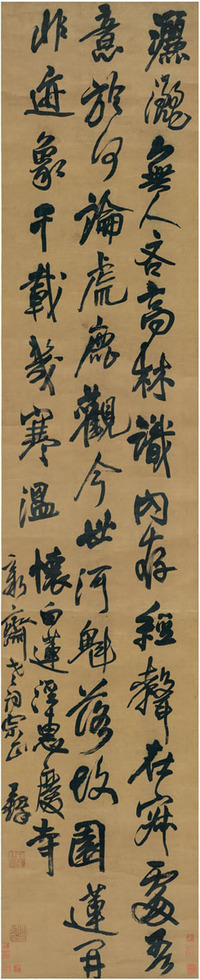 灑灑無人吝高林識內存經聲在寂處吾
意於何論虎鹿觀今世河魁落故園蓮開
非迹象千載幾寒溫 懷白蓮淨惠慶寺
新齋老詞宗正 鐸